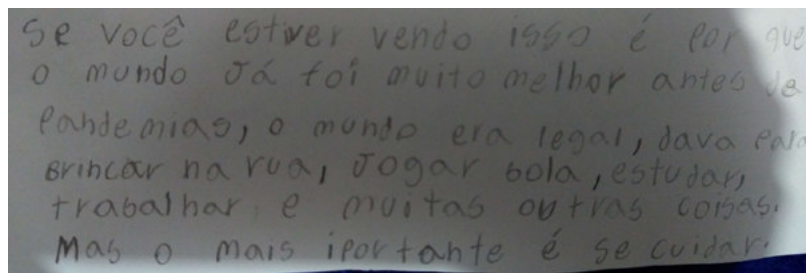 Se você estiver vendo isso é por que
o mundo Já foi muito melhor antes de
Pandemias, o mundo era legal, dava para
Brincar na rua, Jogar bola, estudar,
trabalhar e muitas outras coisas.
Mas o mais iportante é se cuidar.